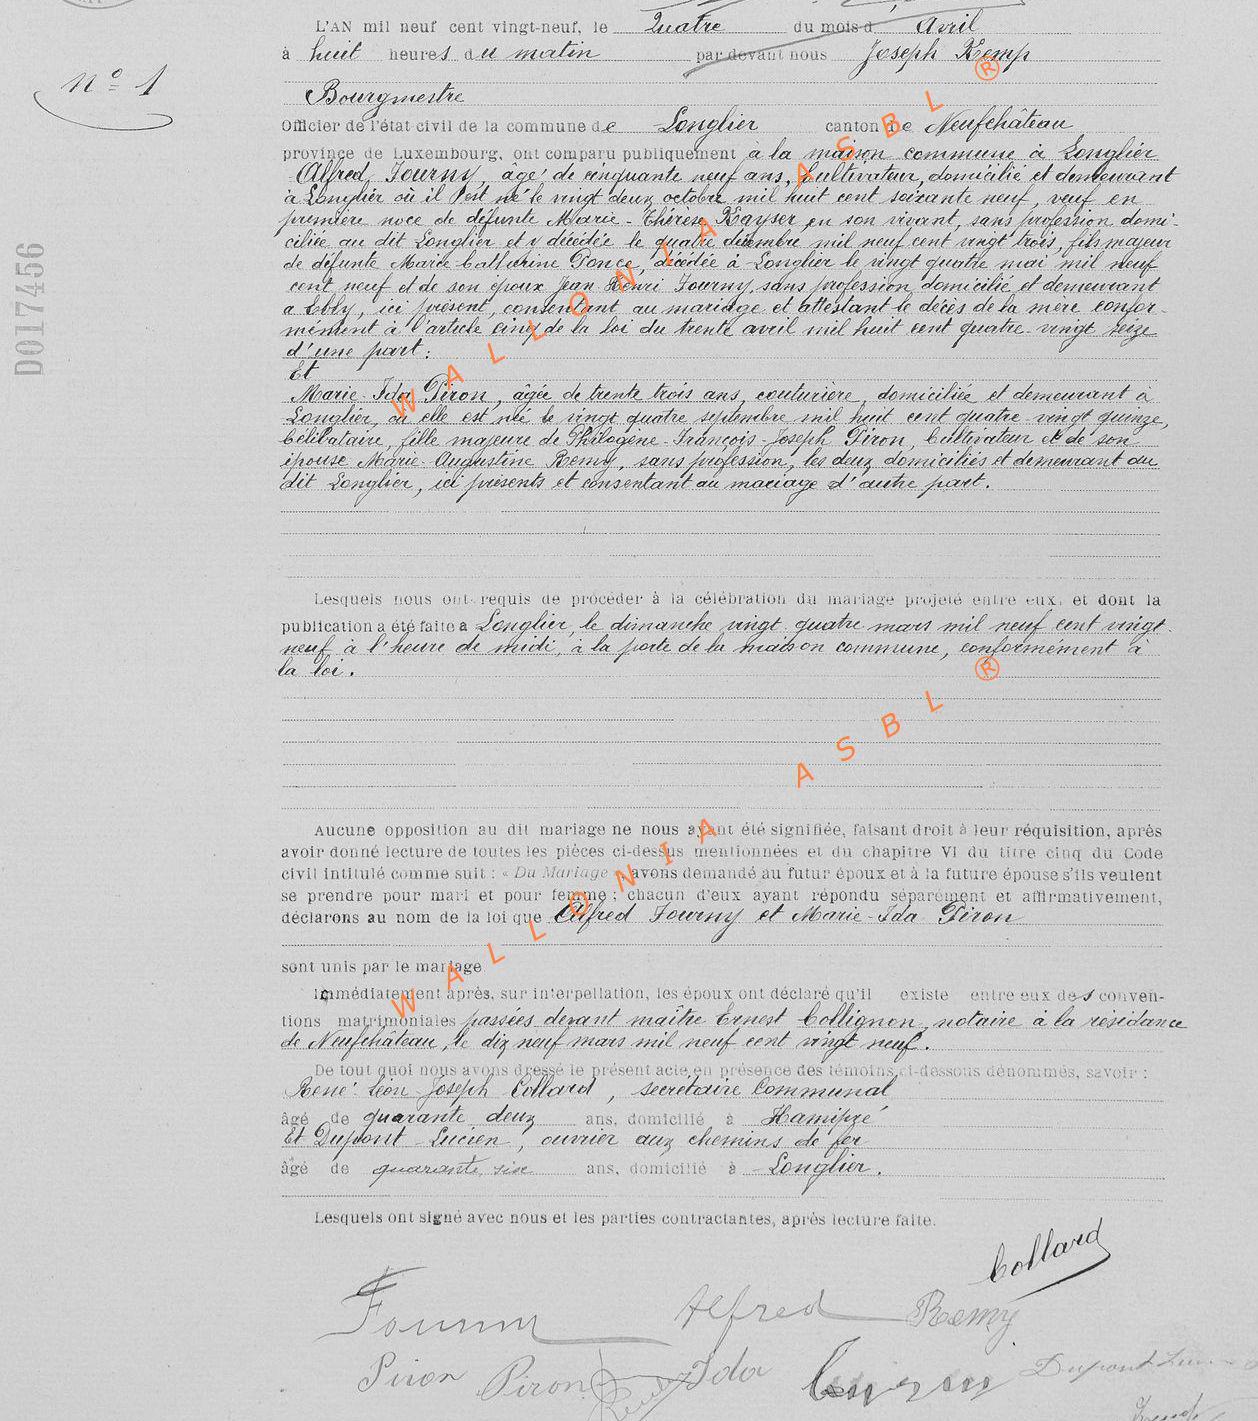 L'AN mil neuf cent vingt-neuf, le Quatre du mois d Avril
à huit heures du matin par devant nous Joseph Kemp
n° 1
Bourgmestre
Officier de l'état civil de la commune de Longlier canton de Neufchâteau
province de Luxembourg, ont comparu publiquement à la maison commune à Longlier
Alfred Fourny, âgé de cinquante neuf ans, cultivateur, domicilié et demeurant
à Longlier où il est né le vingt deux octobre mil huit cent soixante neuf, veuf en
première noce de défunte Marie-Thérèse Kayser en son vivant, sans profession domi-
ciliée au dit Longlier et y décédée le quatre décembre mil neuf cent vingt trois, fils majeur
de défunte Marie Catherine Ponce, décédée à Longlier le vingt quatre mai mil neuf
cent neuf et de son époux Jean Henri Fourny, sans profession, domicilié et demeurant
à Ebly, ici présent, consentant au mariage et attestant le décès de la mère confor-
mément à l'article cinq de la loi du trente avril mil huit cent quatre-vingt seize
d'une part:
Et
Marie-Ida Piron, âgée de trente trois ans, couturière, domiciliée et demeurant à
Longlier, où elle est née le vingt quatre septembre mil huit cent quatre-vingt quinze,
Célibataire, fille majeure de Philogène-François-Joseph Piron, Cultivateur et de son
épouse Marie-Augustine Remy, sans profession, les deux domiciliés et demeurant au
dit Longlier, ici présents et consentant au mariage d'autre part.
Lesquels nous ont requis de procéder à la célébration du mariage projeté entre eux, et dont la
publication a été faite à Longlier, le dimanche vingt-quatre mars mil neuf cent vingt-
neuf à l'heure de midi, à la porte de la maison commune, conformément à
la loi.
Aucune opposition au dit mariage ne nous ayant été signifiée, faisant droit à leur réquisition, après
avoir donné lecture de toutes les pièces ci-dessus mentionnées et du chapitre VI du titre cinq du Code
civil intitulé comme suit : « Du Mariage », avons demandé au futur époux et à la future épouse s'ils veulent
se prendre pour mari et pour femme ; chacun d'eux ayant répondu séparément et affirmativement,
déclarons au nom de la loi que Alfred Fourny et Marie-Ida Piron
sont unis par le mariage
Immédiatement après, sur interpellation, les époux ont déclaré qu'il existe entre eux des conven-
tions matrimoniales passées devant maître Ernest Collignon, notaire à la résidance
de Neufchâteau, le dix neuf mars mil neuf cent vingt neuf.
De tout quoi nous avons dressé le présent acte, en présence des témoins ci-dessous dénommés, savoir :
René-Léon-Joseph Collard, secrétaire Communal
âgé de quarante deux ans, domicilié à Hamipré
Et Dupont Lucien, ouvrier aux chemins de fer
âgé de quarante six ans, domicilié à Longlier.
Lesquels ont signé avec nous et les parties contractantes, après lecture faite.
Collard
Fourny Alfred Remy
Piron Piron Ida Dupont
D017456
WALLONIA ASBL ®
WALLONIA ASBL ®